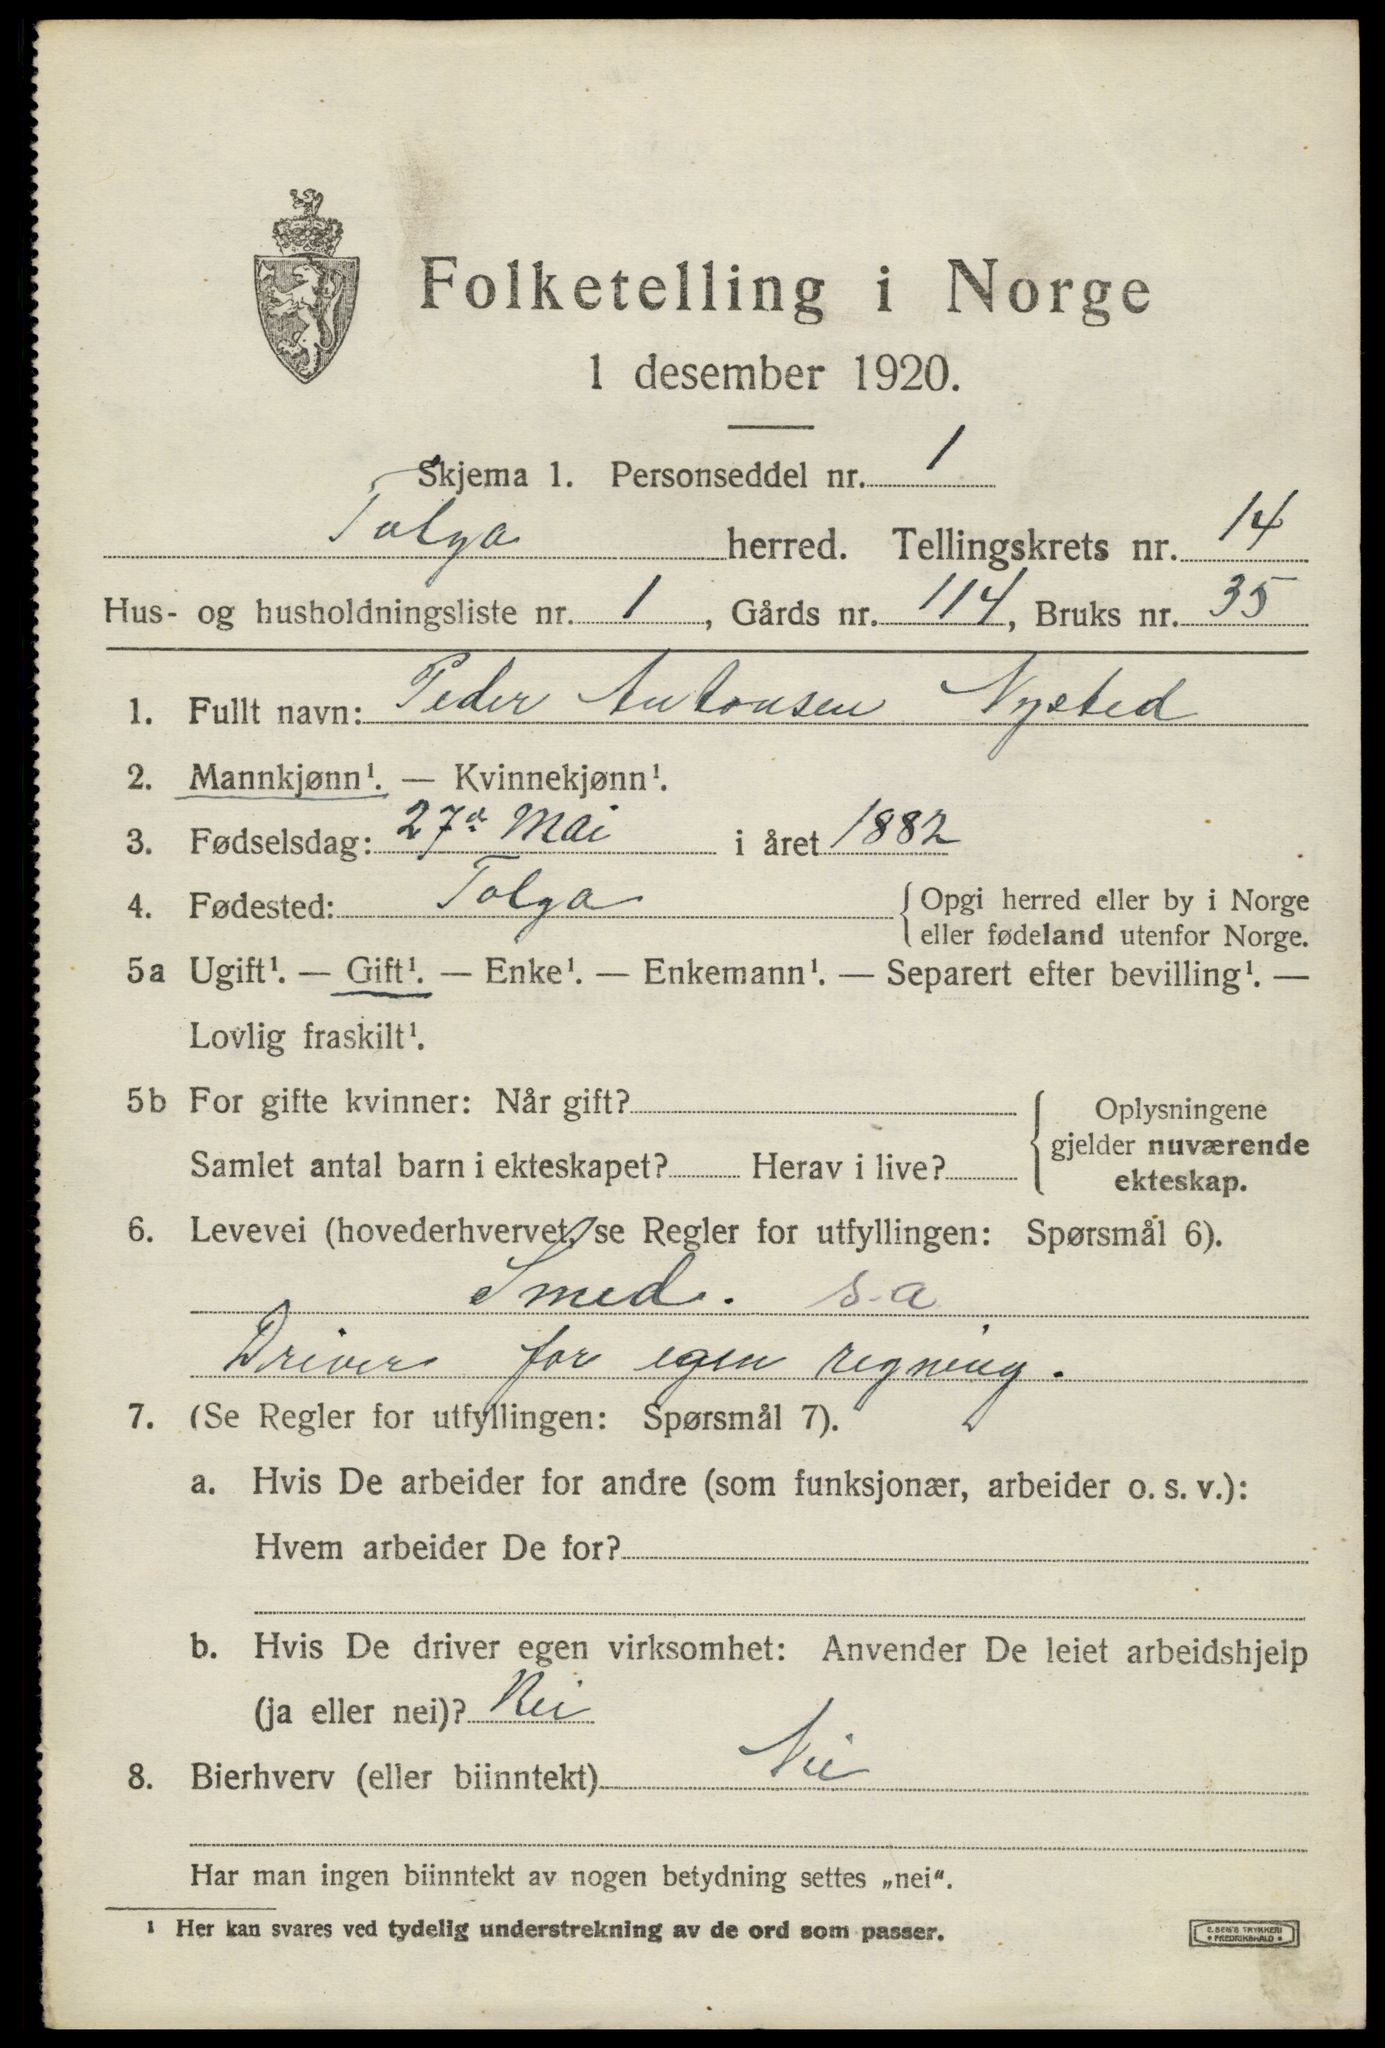 Folketelling i Norge
1 desember 1920.
Skjema 1. Personseddel nr. 1
Tolga herred. Tellingskrets nr. 14
Hus- og husholdningsliste nr. 1, Gårds nr. 114, Bruks nr. 35
1. Fullt navn: Peder Antonsen Nysted
2. Mannkjønn¹. — Kvinnekjønn¹.
3. Fødselsdag: 27de Mai i året 1882
4. Fødested: Tolga { Opgi herred eller by i Norge
eller fødeland utenfor Norge.
5a Ugift¹. — Gift¹. — Enke¹. — Enkemann¹. — Separert efter bevilling¹. —
Lovlig fraskilt¹.
5b For gifte kvinner: Når gift? { Oplysningene
gjelder nuværende
Samlet antal barn i ekteskapet? Herav i live?
ekteskap.
6. Levevei (hovederhvervet, se Regler for utfyllingen: Spørsmål 6).
Smed. s.a
Driver for egen regning.
7. (Se Regler for utfyllingen: Spørsmål 7).
a. Hvis De arbeider for andre (som funksjonær, arbeider o. s. v.):
Hvem arbeider De for?
b. Hvis De driver egen virksomhet: Anvender De leiet arbeidshjelp
(ja eller nei)? Nei
8. Bierhverv (eller biinntekt) Nei
Har man ingen biinntekt av nogen betydning settes „nei“.
¹ Her kan svares ved tydelig understrekning av de ord som passer.
E. SEM'S TRYKKERI
• FREDRIKSHALD •